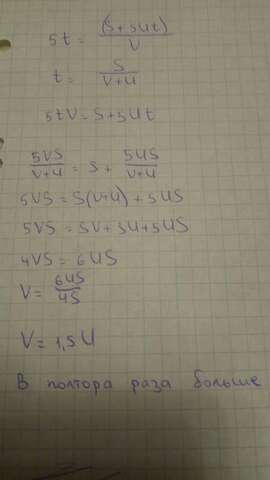 5t = (S+5ut)/V
t = S/(V+u)
5tV = S+5ut
5VS/(V+u) = S + 5uS/(V+u)
5VS = S(V+u) + 5uS
5VS = SV + Su + 5uS
4VS = 6uS
V = 6uS/4S
V = 1,5u
В полтора раза больше